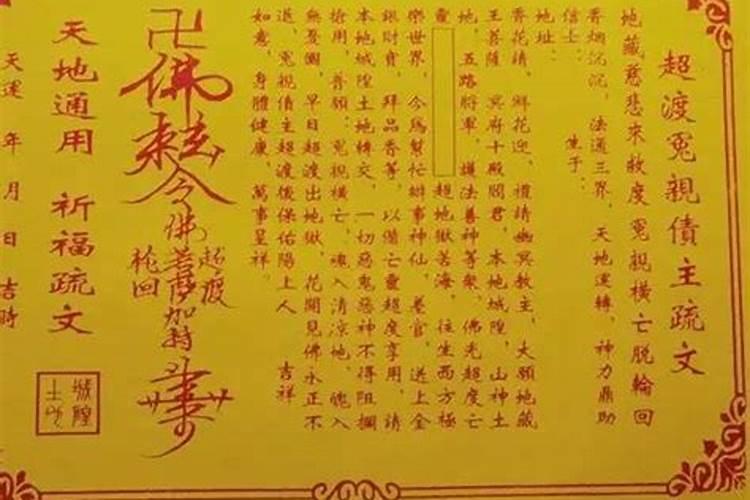 超渡冤親債主疏文
地藏慈悲來救度冤親橫亡脫輪回
香烟沉沉，法通三界，天地運轉，神力鼎助
信士：
生于：
地址：
香花請，鮮花迎，禮請幽冥教主，大願地藏
王菩薩，冥府十殿閻君，本地城隍，山神土
地，五路將軍，護法善神等衆，佛光超度亡
靈
超地獄苦海，往生西方極
樂世界，今爲幫忙辦事神仙，差官，送上金
銀財寶，拜品香等，以備亡靈超度享用，請
本地城隍土地轉交，一切惡鬼惡神不得阻攔
搶用，普願：冤親橫亡，魂入清凉地，魄入
無憂國，早日超渡出地獄，花開見佛永正不
退，冤親債主超渡後保佑陽上人 吉祥
如意，身體健康，萬事呈祥。
卍
佛
敕
令
佛菩薩加持
超渡
輪回
天地通用 祈福疏文
城隍
土地
天運 年 月 日 吉時